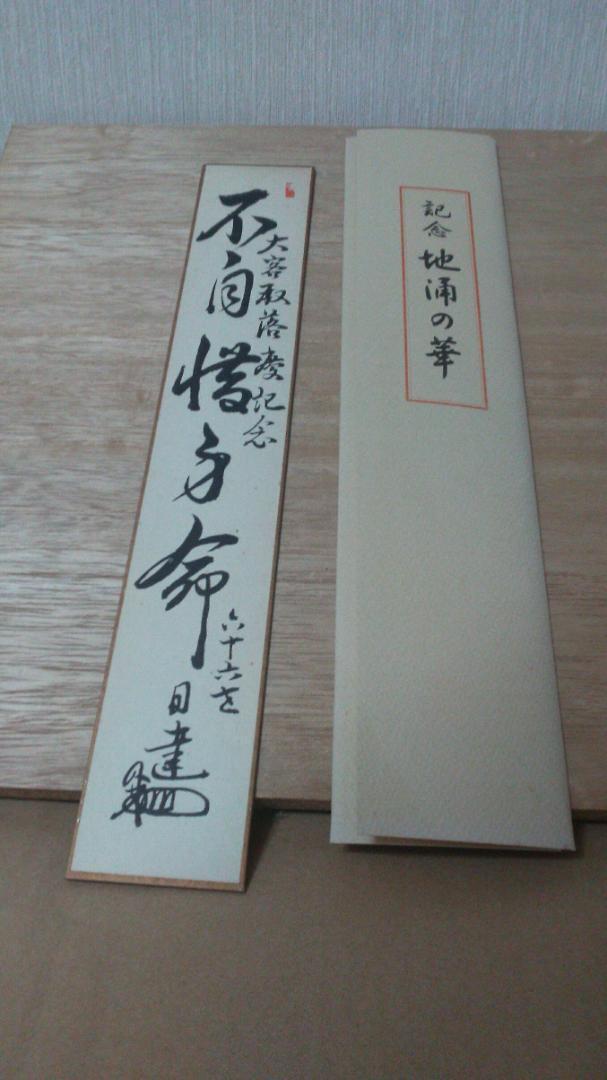 大客殿落慶記念
不自惜身命
六十六才
日達
記念 地涌の華